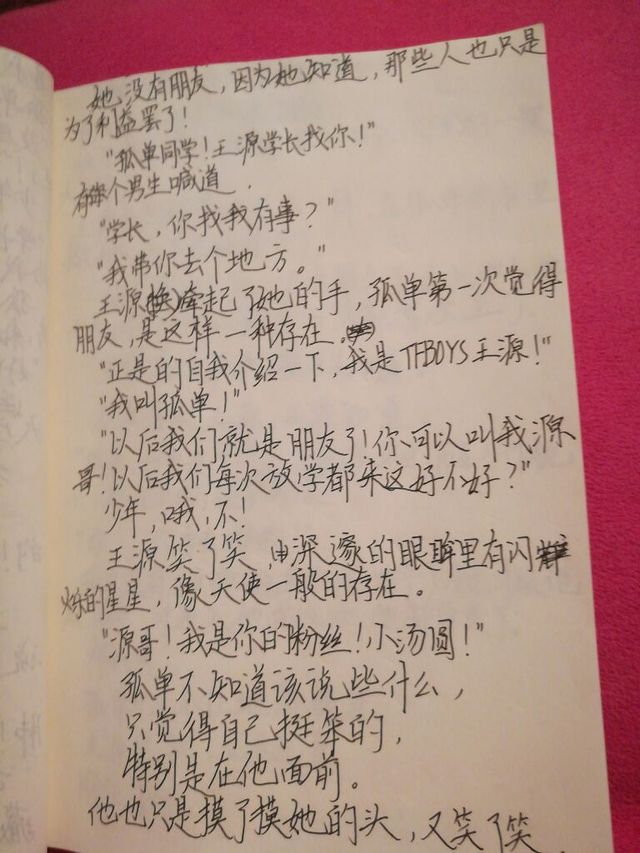 她没有朋友，因为她知道，那些人也只是
为了利益罢了！
"孤单同学！王源学长找你！"
有个男生喊道．
"学长，你找我有事？"
"我带你去个地方。"
王源牵起了她的手，孤单第一次觉得
朋友，是这样一种存在．
"正是的自我介绍一下，我是TFBOYS王源！"
"我叫孤单！"
"以后我们就是朋友了！你可以叫我源
哥！以后我们每次放学都来这好不好？"
少年，哦，不！
王源笑了笑，由深邃的眼眸里有闪
烁的星星，像天使一般的存在。
"源哥！我是你的粉丝！小汤圆！"
孤单不知道该说些什么，
只觉得自己挺笨的，
特别是在他面前。
他也只是摸了摸她的头，又笑了笑．